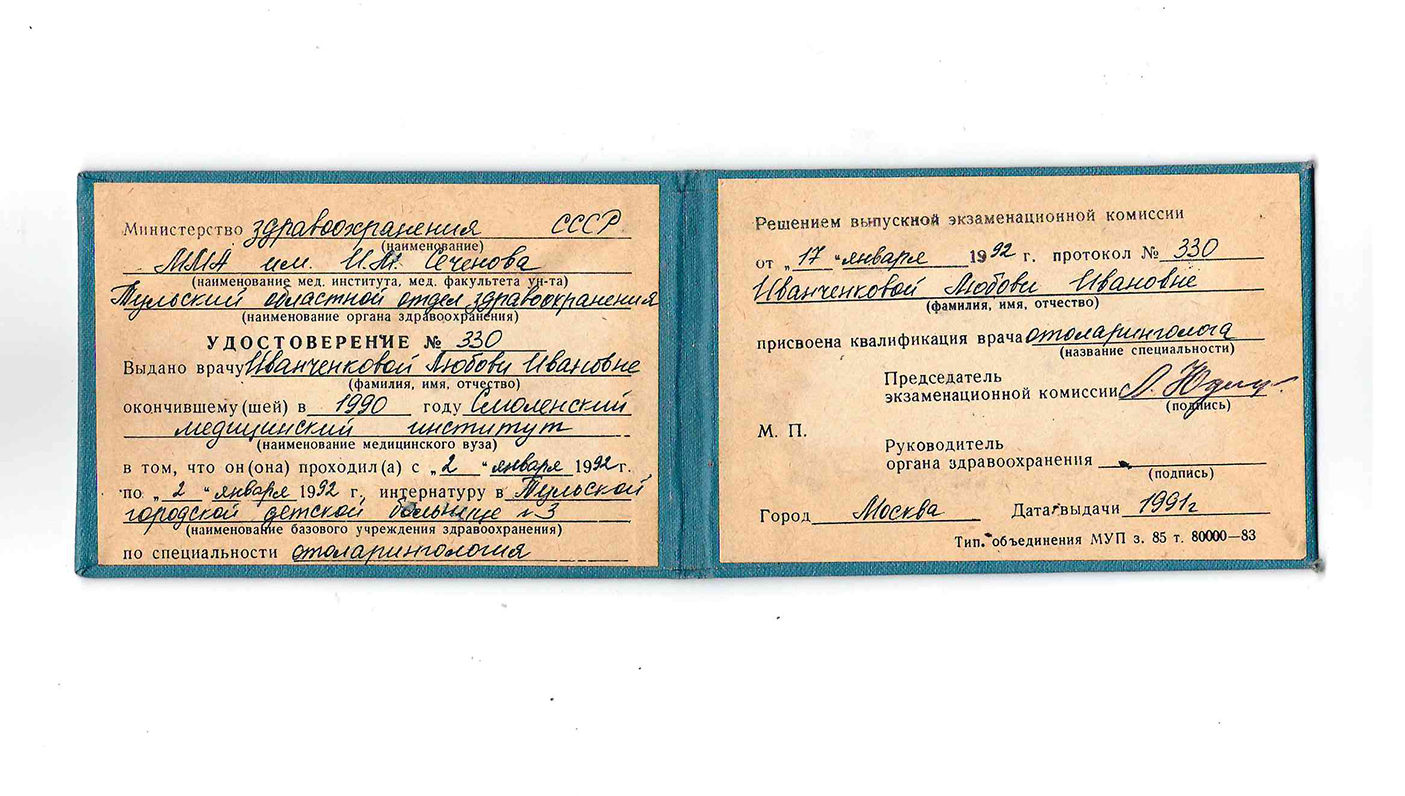 Министерство здравоохранения СССР
(наименование)
ММА им. И.М. Сеченова
(наименование мед. института, мед. факультета ун-та)
Тульский областной отдел здравоохранения
(наименование органа здравоохранения)
УДОСТОВЕРЕНИЕ № 330
Выдано врачу Иванченковой Любови Ивановне
(фамилия, имя, отчество)
окончившему (шей) в 1990 году Смоленский
медицинский институт
(наименование медицинского вуза)
в том, что он (она) проходил (а) с „2“ января 1992 г.
по „2“ января 1992 г. интернатуру в Тульской
городской детской больнице №3
(наименование базового учреждения здравоохранения)
по специальности отоларингология
Решением выпускной экзаменационной комиссии
от „17“ января 1992 г. протокол № 330
Иванченковой Любови Ивановне
(фамилия, имя, отчество)
присвоена квалификация врача отоларинголога
(название специальности)
Председатель
экзаменационной комиссии
(подпись)
М. П.
Руководитель
органа здравоохранения
(подпись)
Город Москва Дата выдачи 1991г
Тип. объединения МУП з. 85 т. 80000—83